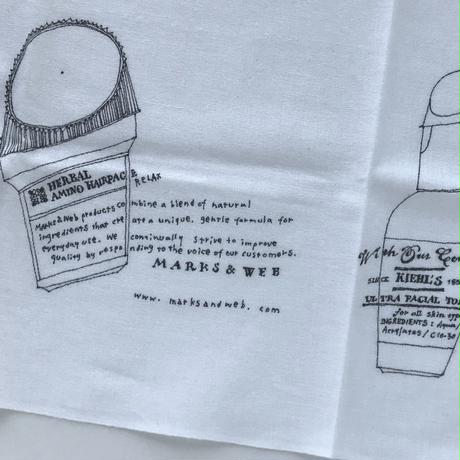 HERBAL
AMINO HAIRPACK
RELAX
Marks & Web products combine a blend of natural
ingredients that create a unique, gentle formula for
everyday use. We continually strive to improve
quality by responding to the voice of our customers.
MARKS & WEB
www. marksandweb. com
With Our
SINCE KIEHL'S 185
ULTRA FACIAL TO
for all skin type
INGREDIENTS: Aqua/